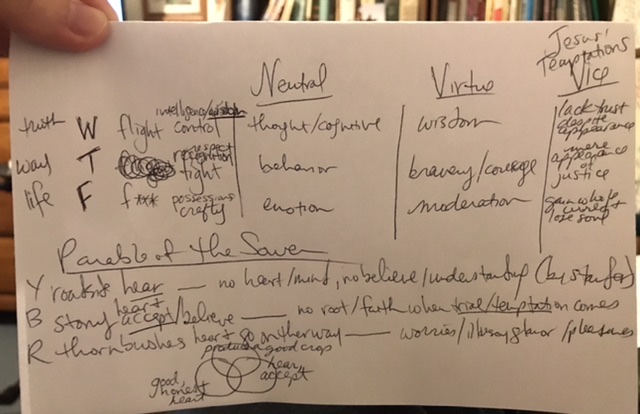 Jesus'
Temptations
Neutral Virtue Vice
truth W flight intelligence/wisdom control thoght/cognitive wisdom lack trust despite appearance
way T respect recognition fight behavior bravery/courage mere appearance of justice
life F f*** possessions crafty emotion moderation gain whole lose soul
Parable of the Sower
Y roadside hear — no heart/mind, no believe/understanding (by standers)
B stony heart accept/believe — no root/faith when trial/temptation comes
R thornbushes heart go on their way — worries/ /pleasures
producing good crops
hear, accept
good, honest heart